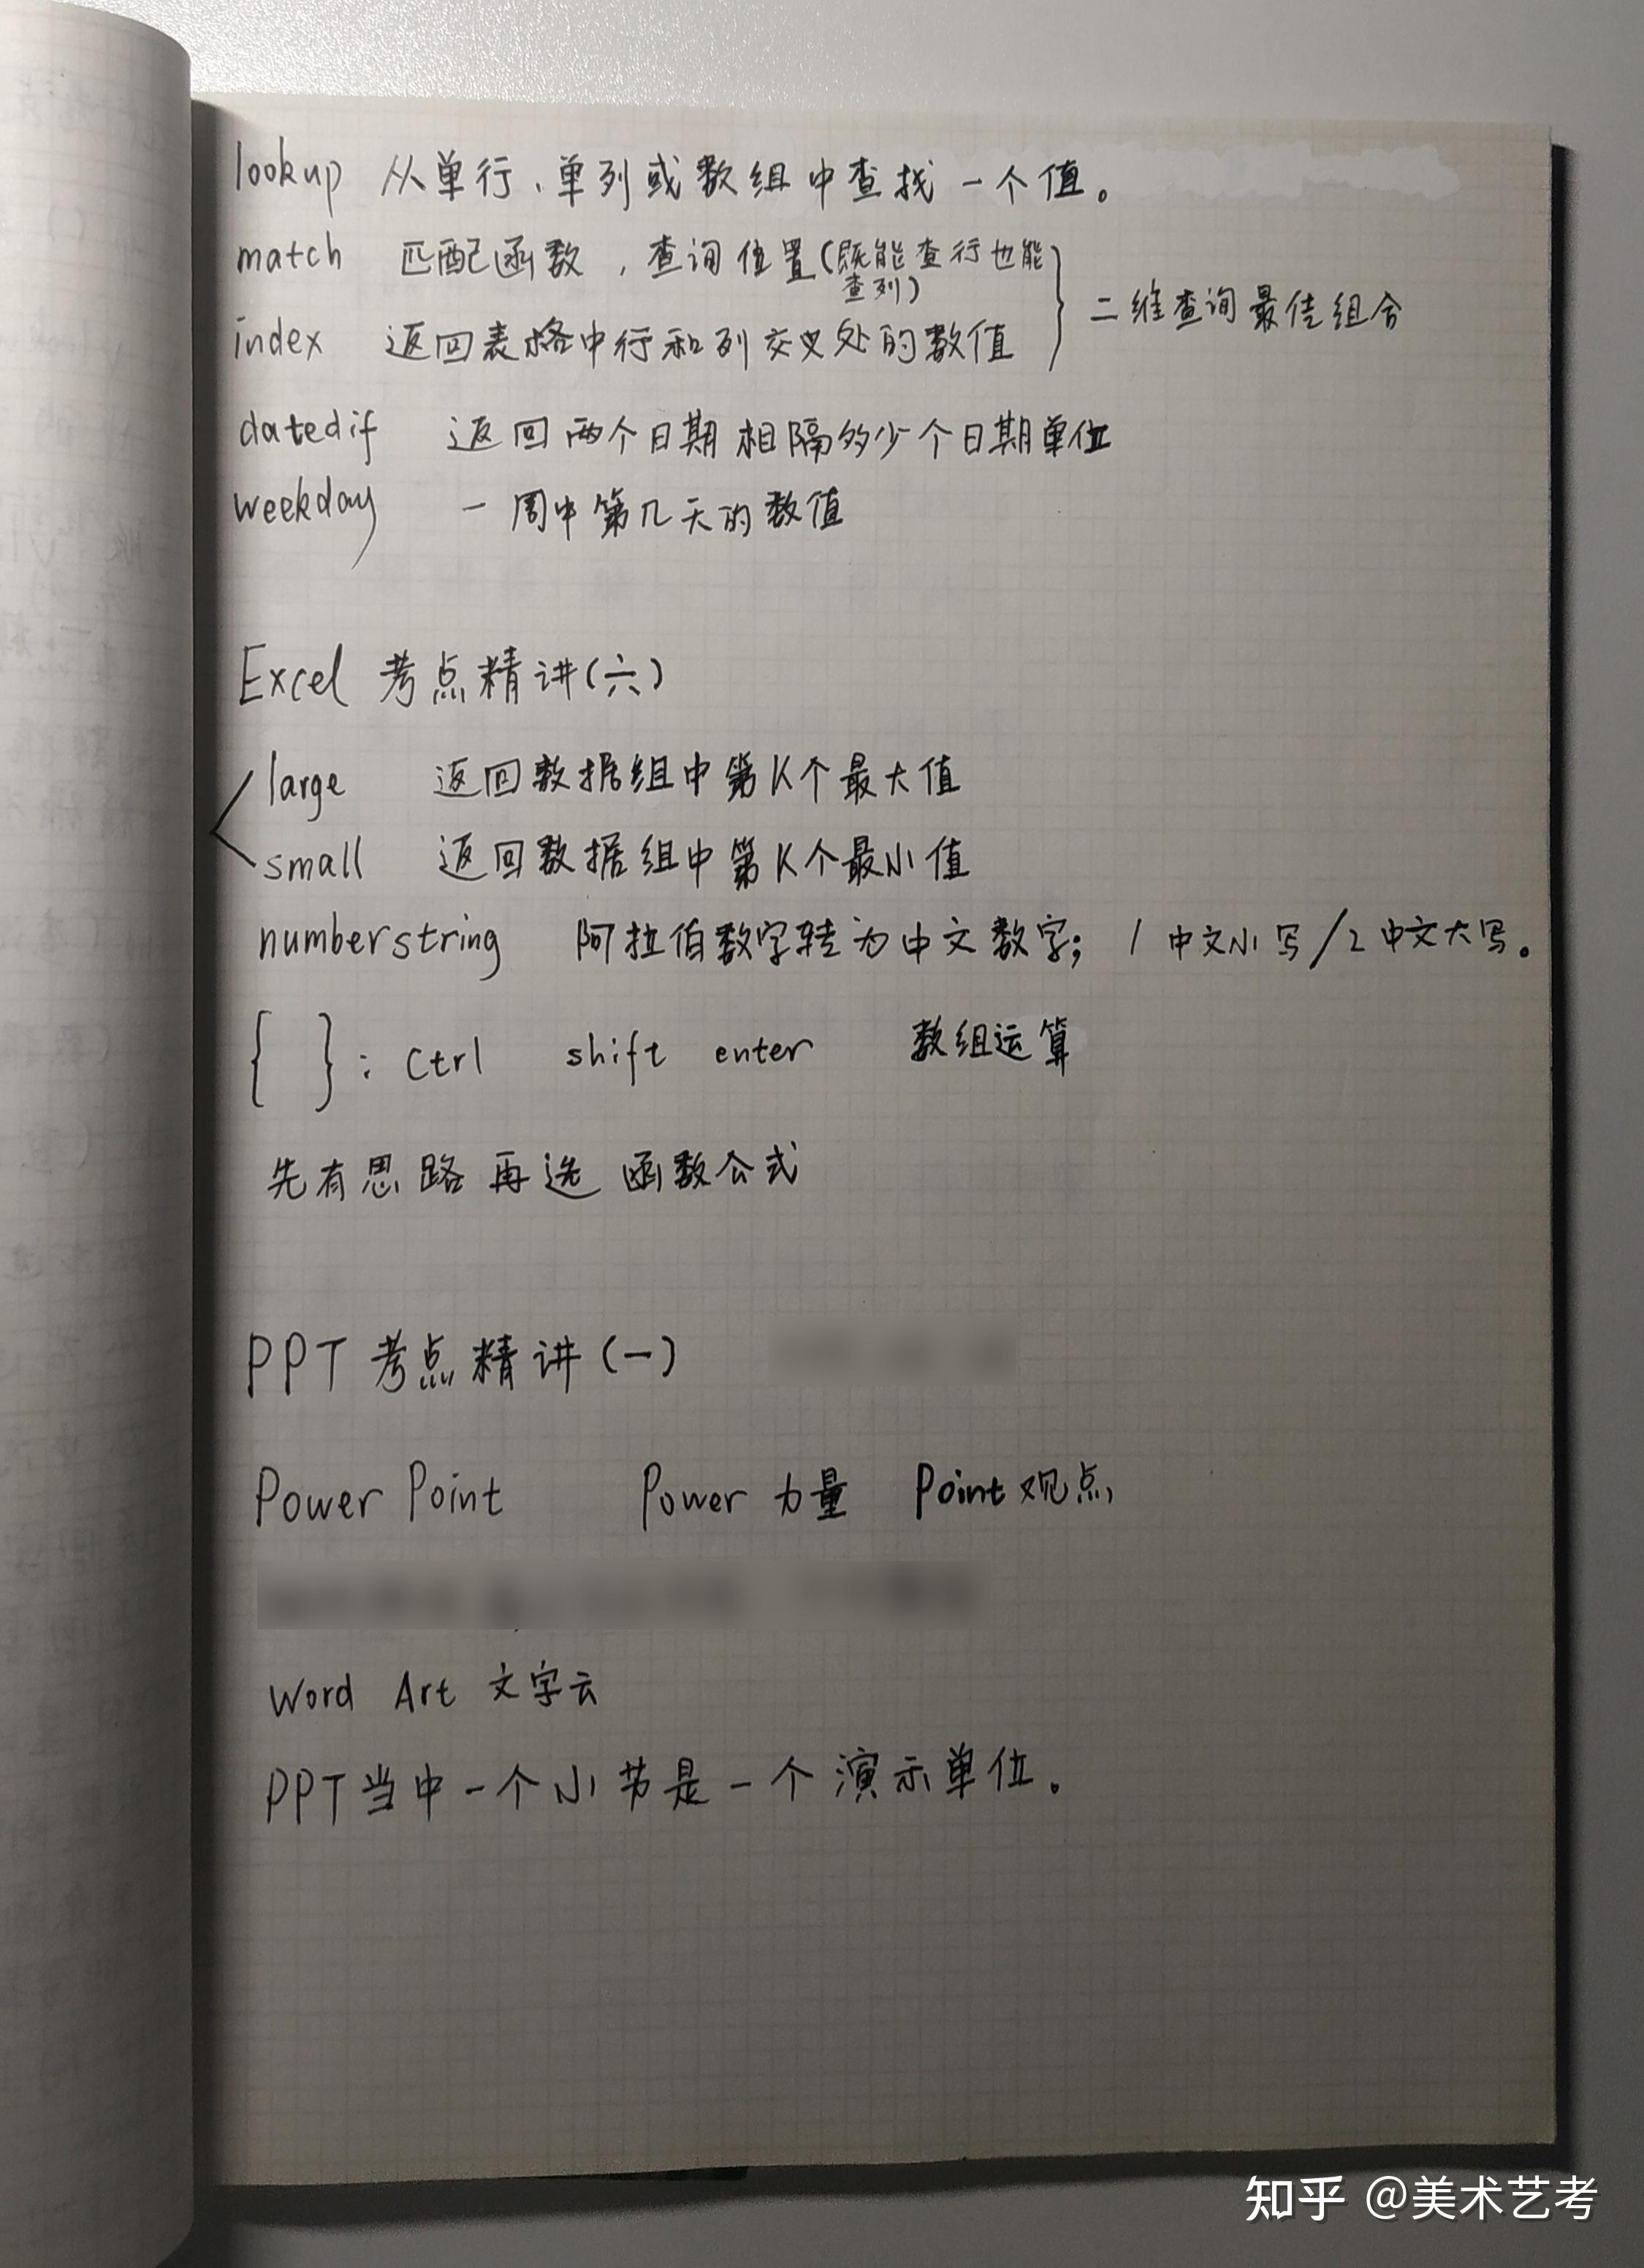 lookup 从单行、单列或数组中查找一个值。
match 匹配函数，查询位置(既能查行也能
查列)
二维查询最佳组合
index 返回表格中行和列交叉处的数值
datedif 返回两个日期相隔多少个日期单位
weekday 一周中第几天的数值
Excel 考点精讲(六)
large 返回数据组中第K个最大值
small 返回数据组中第K个最小值
numberstring 阿拉伯数字转为中文数字; 1 中文小写/2 中文大写。
{ }: Ctrl shift enter 数组运算
先有思路再选 函数公式
PPT 考点精讲(一)
Power Point Power 力量 Point 观点
Word Art 文字云
PPT当中一个小节是一个演示单位。
知乎 @美术艺考